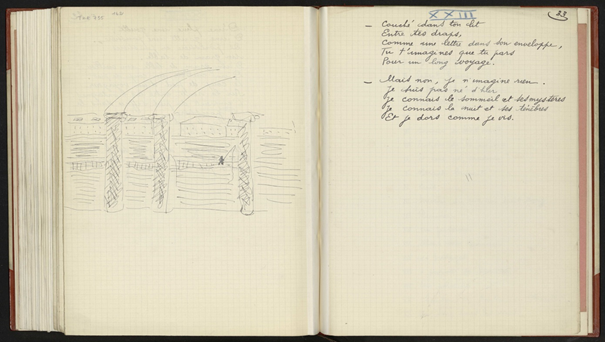 XXIII
23
— Couché dans ton lit
Entre tes draps,
Comme une lettre dans son enveloppe,
Tu t'imagines que tu pars
Pour un long voyage.
— Mais non, je n'imagine rien.
Je suis pas né d'hier
Je connais le sommeil et ses mystères
Je connais la nuit et ses ténèbres
Et je dors comme je vis.